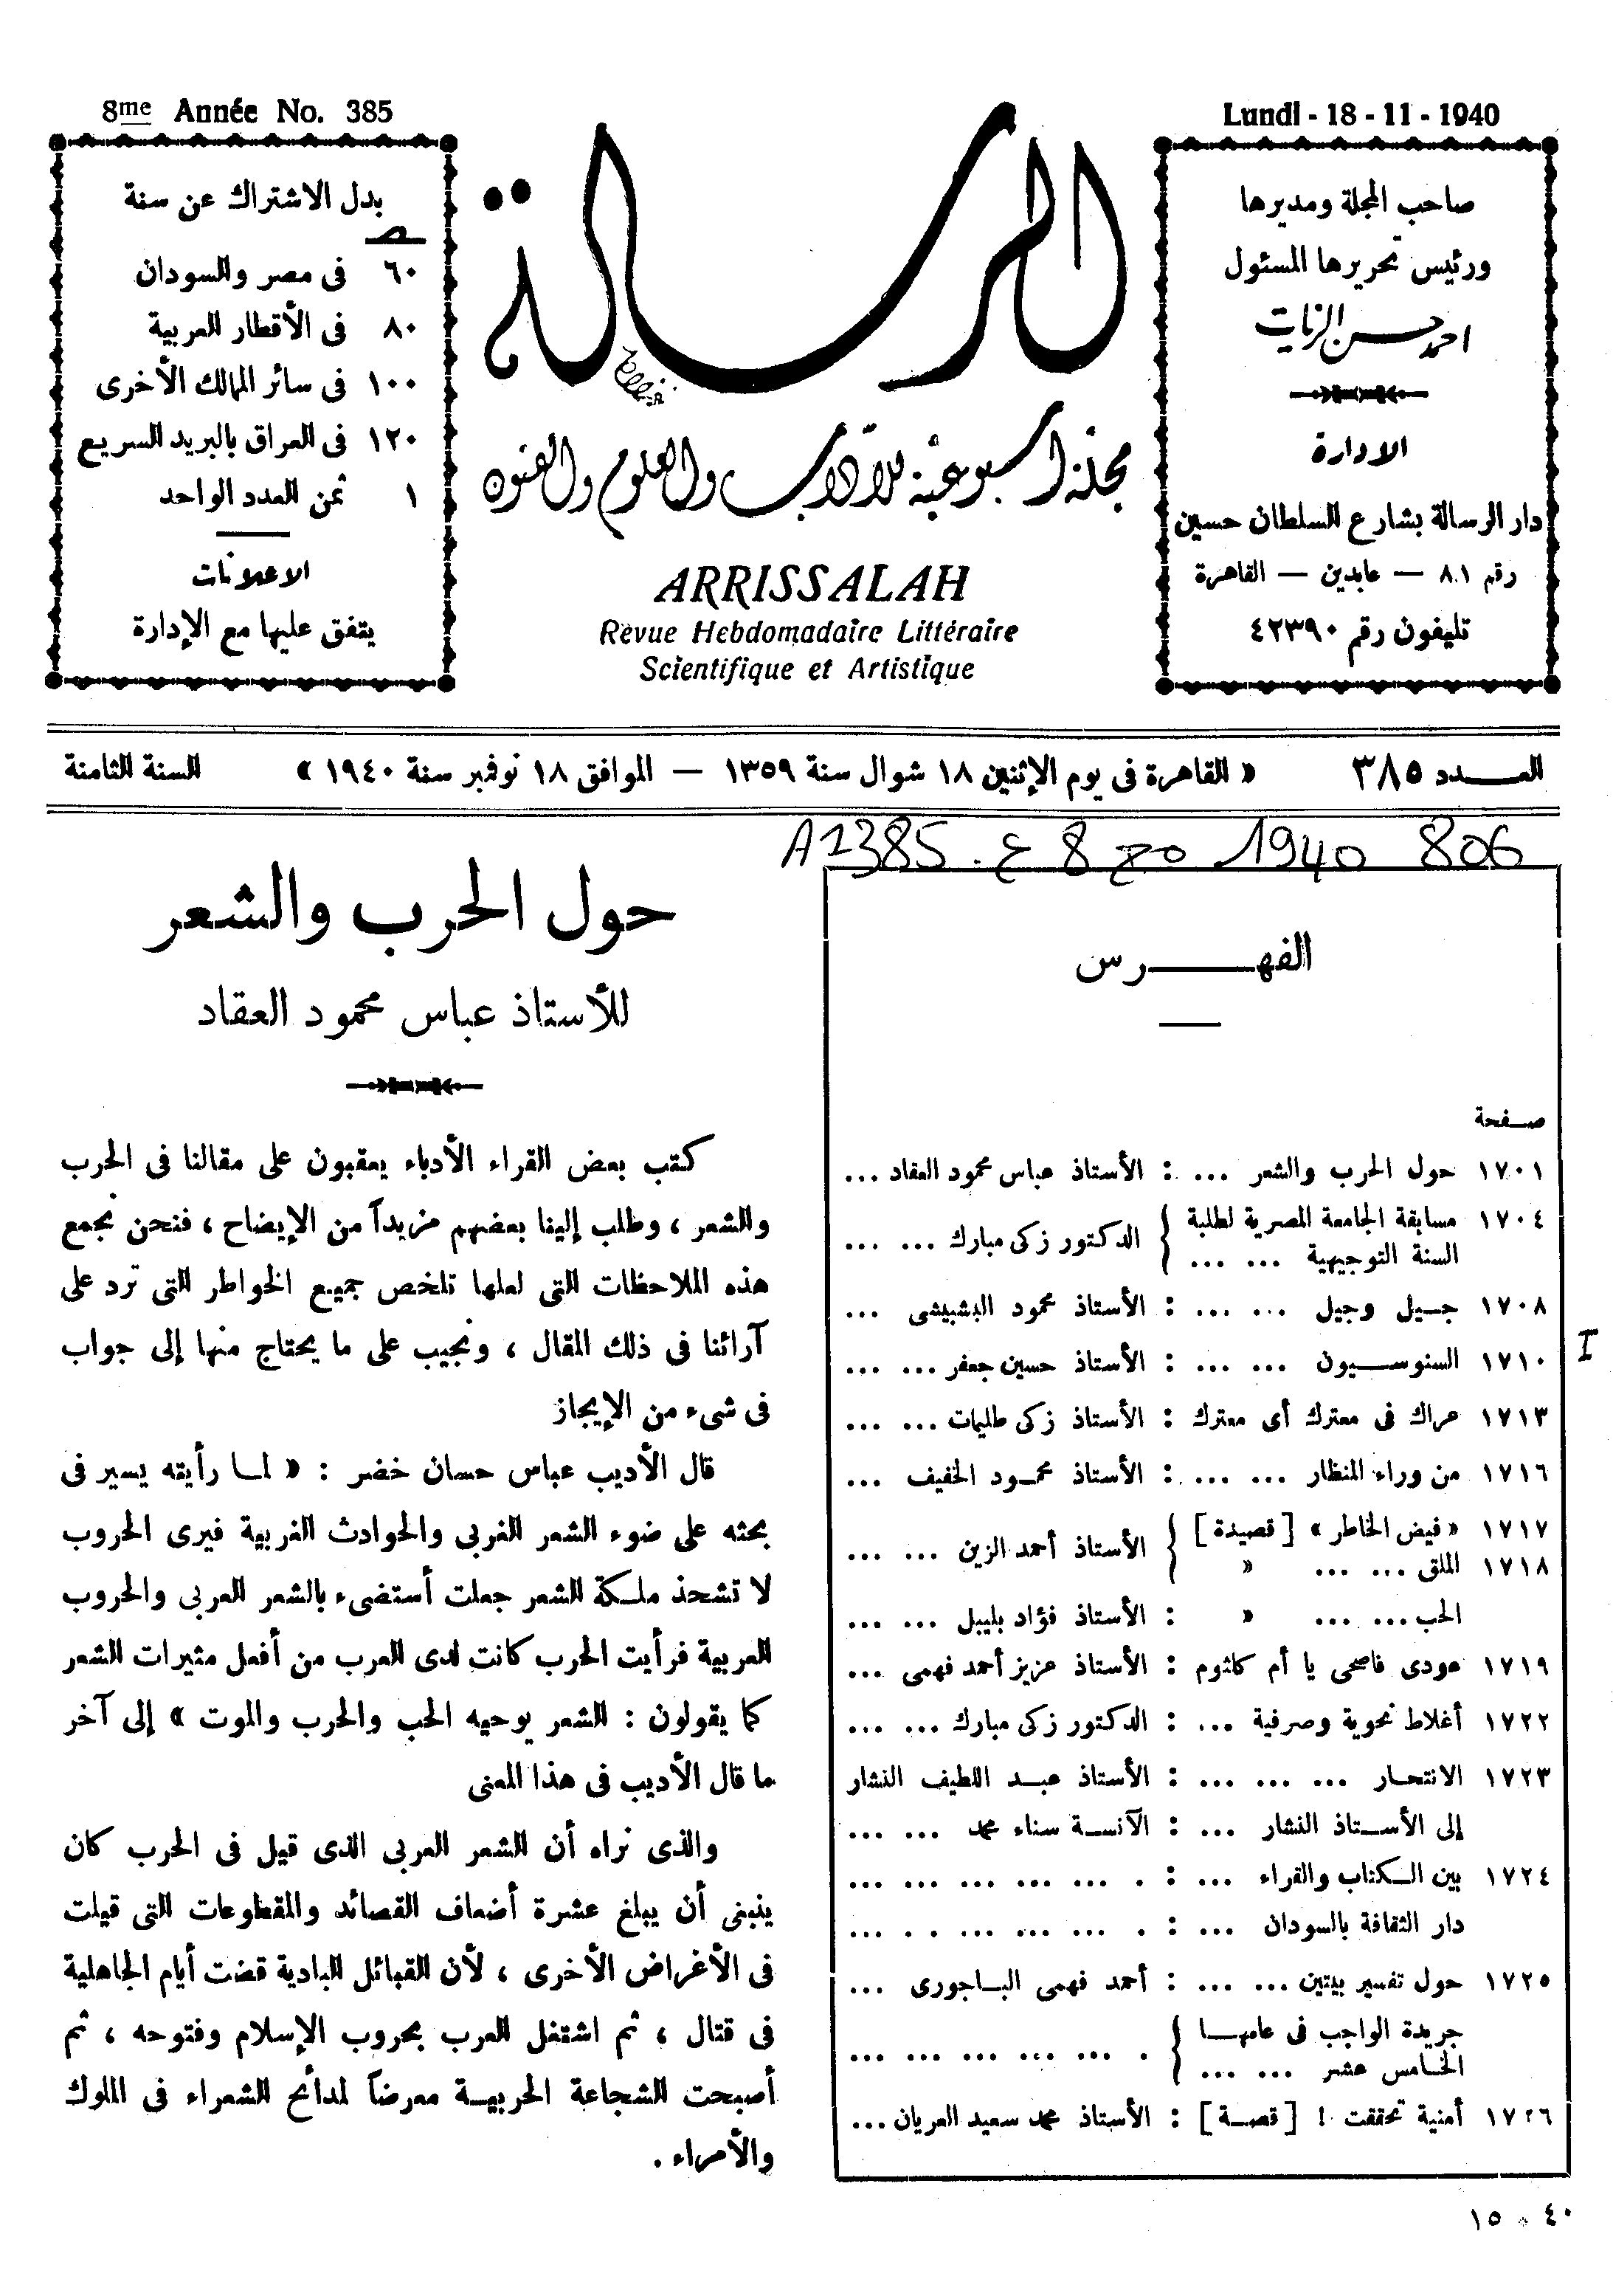 Lundi - 18 - 11 - 1940
8me Année No. 385
صاحب المجلة ومديرها
ورئيس تحريرها المسئول
احمد حسن الزيات
الادارة
دار الرسالة بشارع السلطان حسين
رقم ٨١ — عابدين — القاهرة
تليفون رقم ٤٢٣٩٠
الرسالة
مجلة أسبوعية للآداب والعلوم والفنون
ARRISSALAH
Revue Hebdomadaire Littéraire
Scientifique et Artistique
بدل الاشتراك عن سنة
٦٠ فى مصر والسودان
٨٠ فى الأقطار العربية
١٠٠ فى سائر الممالك الأخرى
١٢٠ فى العراق بالبريد السريع
١ ثمن العدد الواحد
الاعلانات
يتفق عليها مع الإدارة
العـــدد ٣٨٥ « القاهرة فى يوم الإثنين ١٨ شوال سنة ١٣٥٩ — الموافق ١٨ نوفمبر سنة ١٩٤٠ » السنة الثامنة
806 1940 مج 8 ع. A2385
الفهـــرس
صفحة
١٧٠١ حول الحرب والشعر ... : الأستاذ عباس محمود العقاد ...
١٧٠٤ مسابقة الجامعة المصرية لطلبة
السنة التوجيهية ... ... } الدكتور زكى مبارك ... ...
١٧٠٨ جـيل وجيل ... ... : الأستاذ محمود البشبيشى ...
١٧١٠ السنوسـيون ... ... : الأستاذ حسين جعفر ... ...
١٧١٣ عراك فى معترك أى معترك : الأستاذ زكى طليمات ... ...
١٧١٦ من وراء المنظار ... ... : الأستاذ محمـود الخفيف ...
١٧١٧ « فيض الخاطر » [ قصيدة ]
١٧١٨ الملق ... ... » } الأستاذ أحمد الزين ... ...
الحب ... ... » : الأستاذ فؤاد بليبل ... ...
١٧١٩ عودى فاصحى يا أم كلثوم : الأستاذ عزيز أحمد فهمى ...
١٧٢٢ أغلاط نحوية وصرفية ... : الدكتور زكى مبارك ... ...
١٧٢٣ الانتحـار ... ... ... : الأستاذ عبـد اللطيف النشار
إلى الأسـتاذ النشار ... : الآنسـة سناء محمد ... ...
١٧٢٤ بين الـكتاب والقراء ... : . ... ... ... ... ...
دار الثقافة بالسودان ... : . ... ... ... . . ...
١٧٢٥ حول تفسير بيتين ... ... : أحمد فهمى البـاجورى ...
جريدة الواجب فى عامهـا
الخـامس عشر ... ... } . ... ... ... ... ...
١٧٢٦ أمنية تحققت ! [ قصـة ] : الأستاذ محمد سعيد العريان ...
I
٤٠ * ١٥
حول الحرب والشعر
للأستاذ عباس محمود العقاد
كتب بعض القراء الأدباء يعقبون على مقالنا فى الحرب
والشعر ، وطلب إلينا بعضهم مزيداً من الإيضاح ، فنحن نجمع
هذه الملاحظات التى لعلها تلخص جميع الخواطر التى ترد على
آرائنا فى ذلك المقال ، ونجيب على ما يحتاج منها إلى جواب
فى شىء من الإيجاز
قال الأديب عباس حسان خضر : « لمـا رأيته يسير فى
بحثه على ضوء الشعر الغربى والحوادث الغربية فيرى الحروب
لا تشحذ ملـكة الشعر جعلت أستضىء بالشعر العربى والحروب
العربية فرأيت الحرب كانت لدى العرب من أفعل مثيرات الشعر
كما يقولون : الشعر يوحيه الحب والحرب والموت » إلى آخر
ما قال الأديب فى هذا المعنى
والذى نراه أن الشعر العربى الذى قيل فى الحرب كان
ينبغى أن يبلغ عشرة أضعاف القصائد والمقطوعات التى قيلت
فى الأغراض الأخرى ، لأن القبائل البادية قضت أيام الجاهلية
فى قتال ، ثم اشتغل العرب بحروب الإسلام وفتوحه ، ثم
أصبحت الشجاعة الحربيـة معرضاً لمدائح الشعراء فى الملوك
والأمراء .